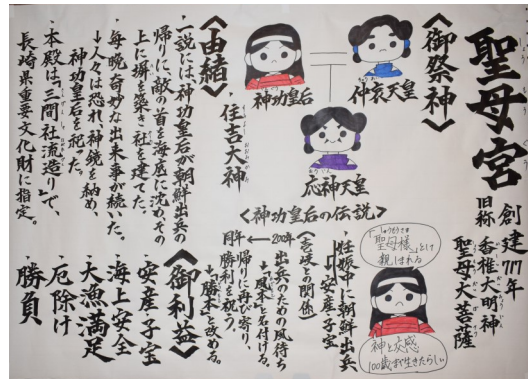 聖母宮
創建717年
旧称 香椎大明神
聖母大菩薩
《御祭神》
仲哀天皇
神功皇后
応神天皇
住吉大神
《由緒》
・一説には、神功皇后が朝鮮出兵の
帰りに、敵の首を海底に沈め、その
上に塀を築き社を建てた。
・毎晩奇妙な出来事が続いた。
→人々は恐れ、神鏡を納め、
神功皇后を祀った。
・本殿は、「三間社流造り」で、
長崎県重要文化財に指定。
<神功皇后の伝説>
「しょうもさま
聖母様」として
親しまれる
神と交感
100歳まで生きたらしい
・妊娠中に朝鮮出兵
→「安産」「子宝」
《壱岐との関係》
出兵のための風待ち
→「風本」と名付ける。
200年
同年
帰りに再び寄り、
勝利を祝う。
→「勝本」に改める。
《御利益》
安産・子宝
海上安全
大漁満足
厄除け
勝負